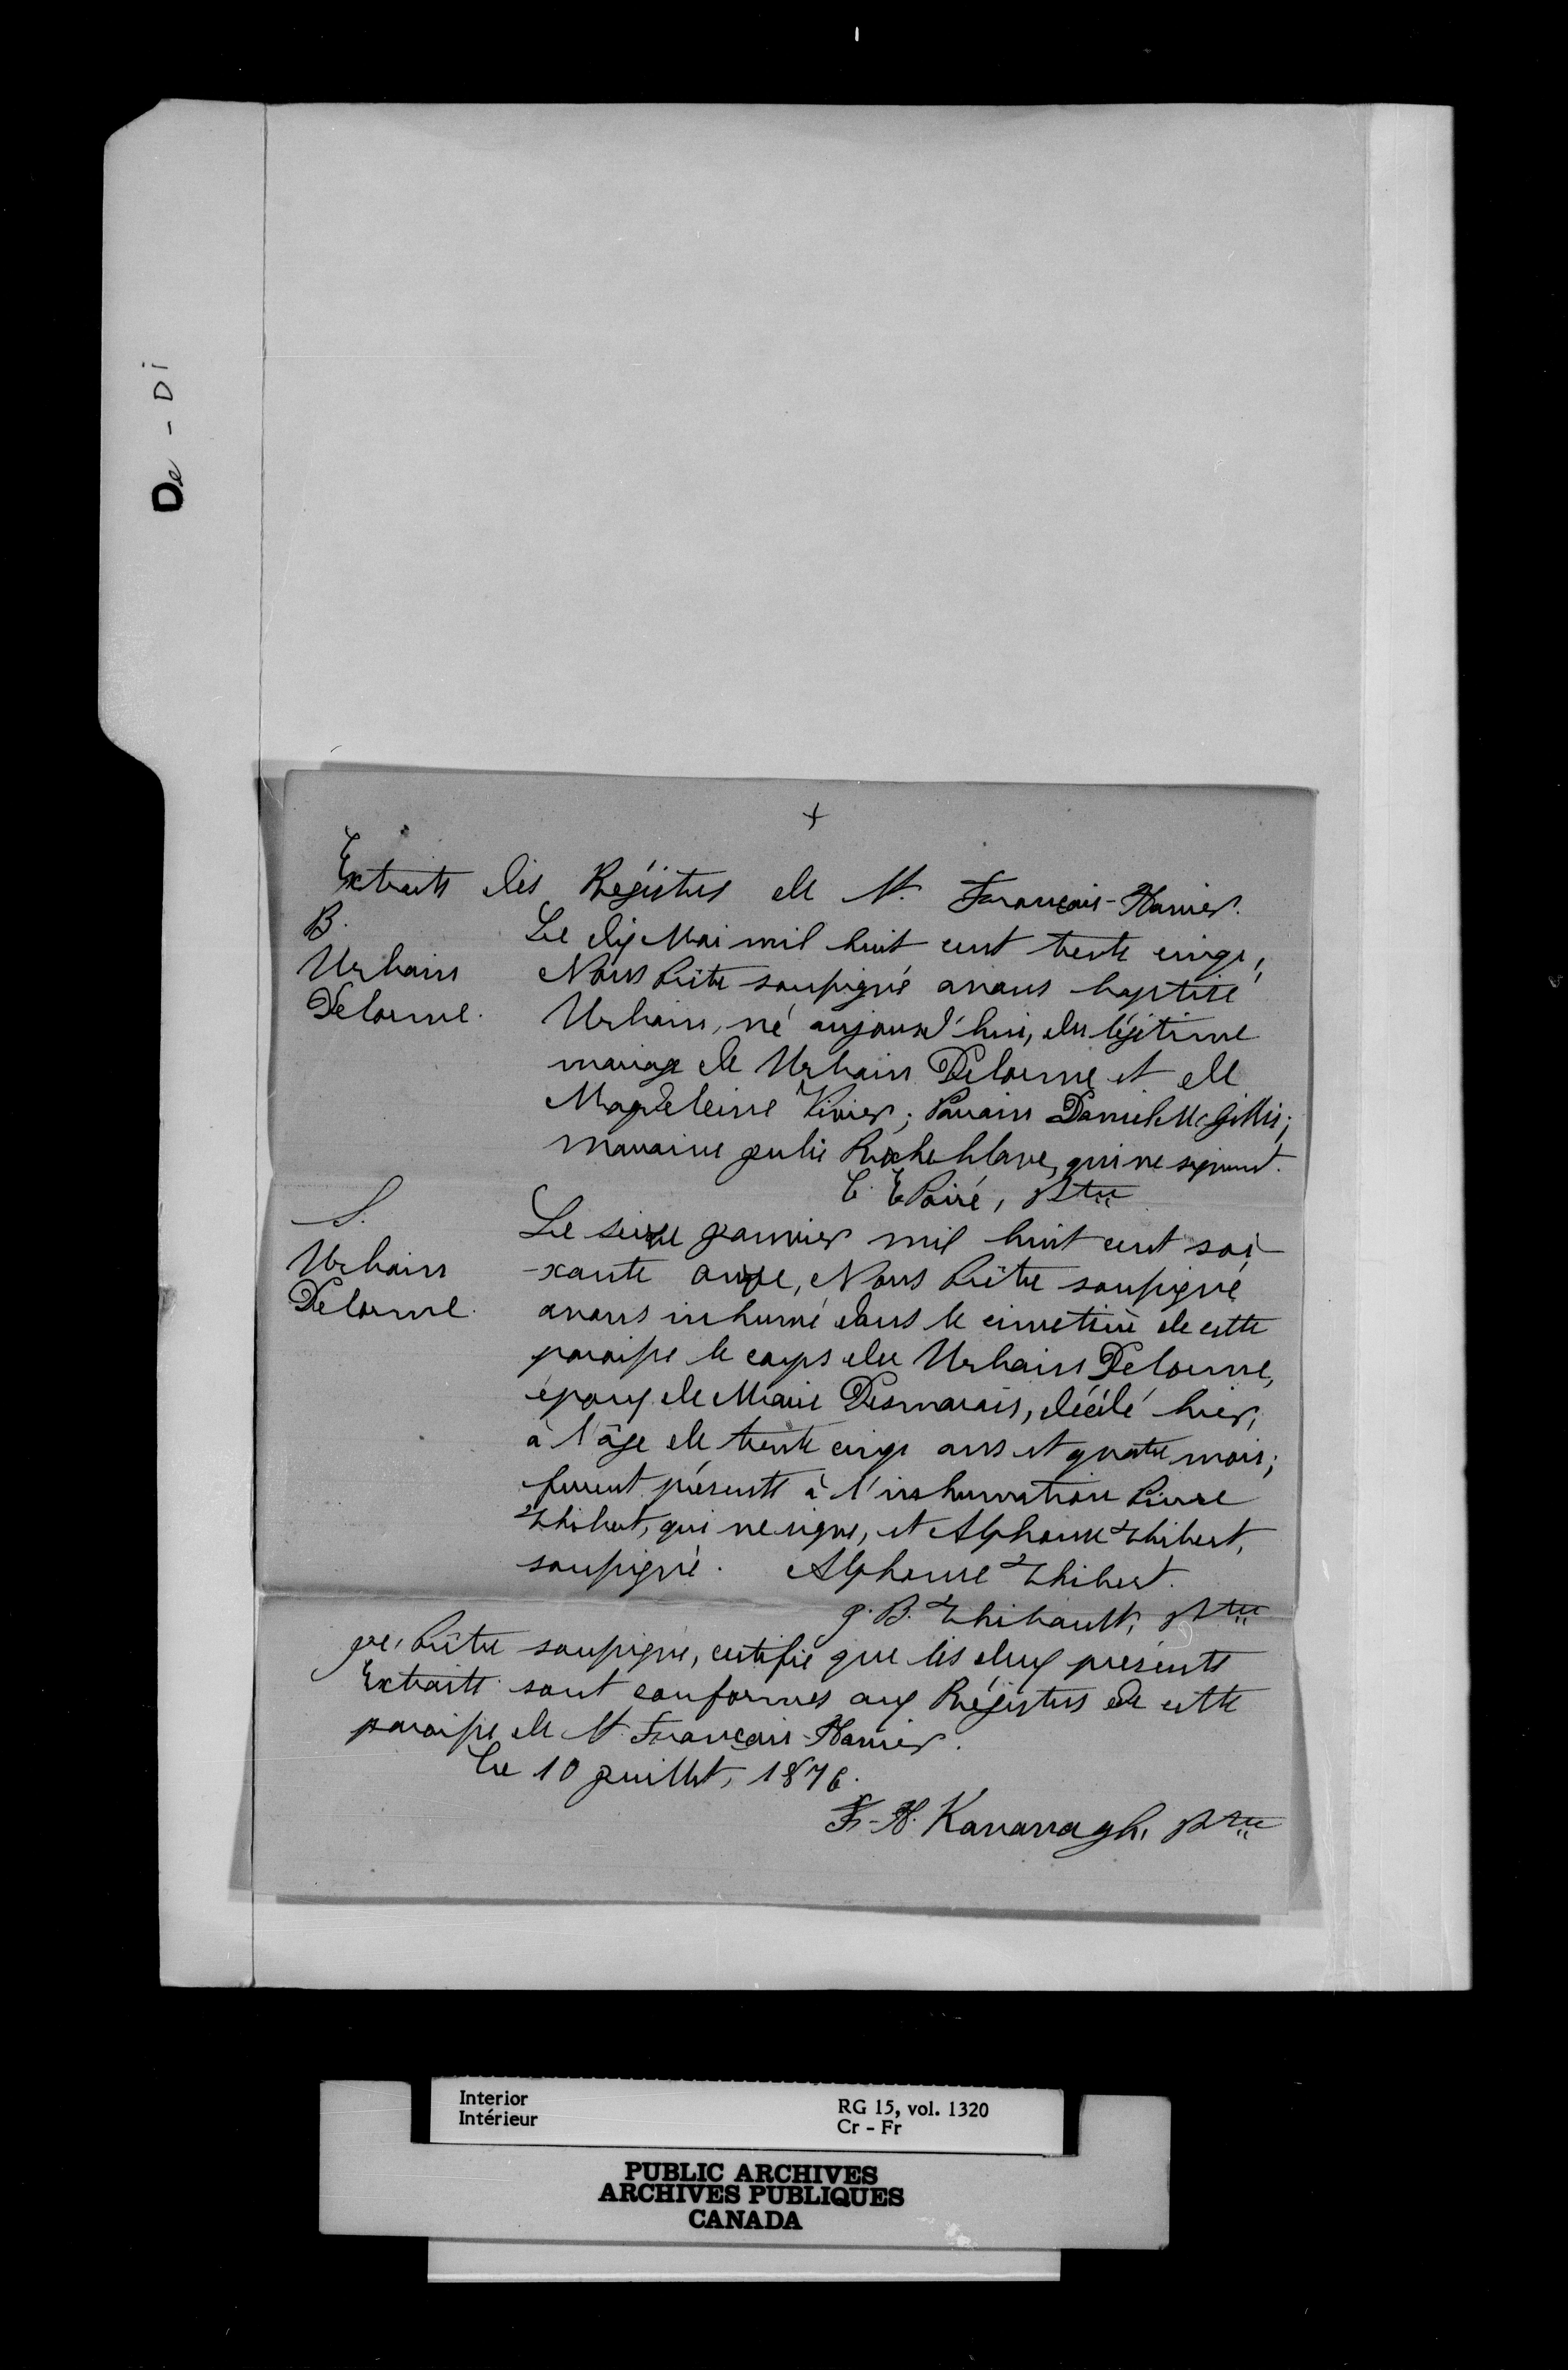 De - Di
+
Extraits des Régistres de St. François-Xavier.
B.
Urbain
Delorme.
Le dix Mai mil huit cent trente cinq,
Nous Prêtre soussigné avons baptisé
Urbain, né aujourd'hui, du légitime
mariage de Urbain Delorme et de
Magdeleine Vivier; Parrain Daniel McGillis;
marraine Julie Rocheblave, qui ne signent.
C. E Poiré, Ptre
S.
Urbain
Delorme.
Le seize Janvier mil huit cent soi
-xante onze, Nous Prêtre soussigné
avons inhumé dans le cimetière de cette
paroisse le corps de Urbain Delorme,
époux de Marie Desmarais, décédé hier,
à l'âge de trente cinq ans et quatre mois;
furent présents à l'inhumation Pierre
Thibert, qui ne signe, et Alphonse Thibert,
soussigné. Alphonse Thibert.
J. B. Thibault, Ptre
Je, Prêtre soussigné, certifie que les deux présents
Extraits sont conformes aux Régistres de cette
paroisse de St. François-Xavier.
Ce 10 Juillet, 1876.
F.-X. Kavanagh, Ptre
Interior
Intérieur
RG 15, vol. 1320
Cr - Fr
PUBLIC ARCHIVES
ARCHIVES PUBLIQUES
CANADA